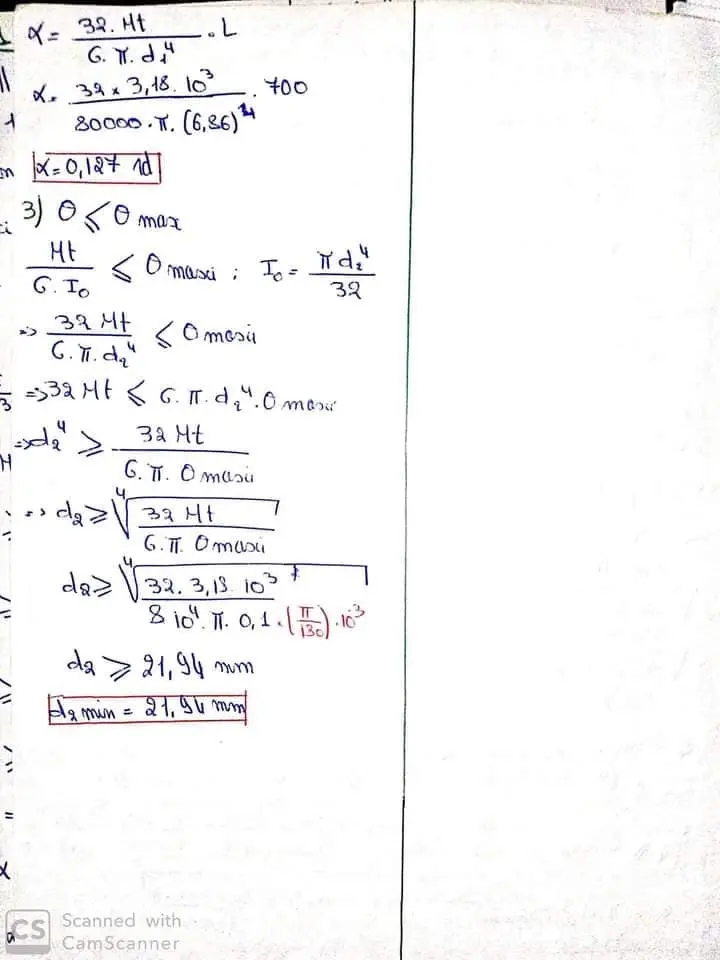 α = 32. Mt / G. π. d₁⁴ . L
α = 32 × 3,18. 10³ / 80000. π. (6,86)⁴ . 700
α = 0,127 rd
3) θ ⩽ θ max
Mt / G. I₀ ⩽ θ maxi ; I₀ = π d₂⁴ / 32
=> 32 Mt / G. π. d₂⁴ ⩽ θ maxi
=> 32 Mt ⩽ G. π. d₂⁴. θ maxi
=> d₂⁴ ⩾ 32 Mt / G. π. θ maxi
=> d₂ ⩾ ⁴√ 32 Mt / G. π. θ maxi
d₂ ⩾ ⁴√ 32. 3,18 10³ / 8 10⁴. π. 0,1 . (π/180) . 10⁻³
d₂ ⩾ 21,94 mm
d₂ min = 21,94 mm
CS Scanned with
CamScanner